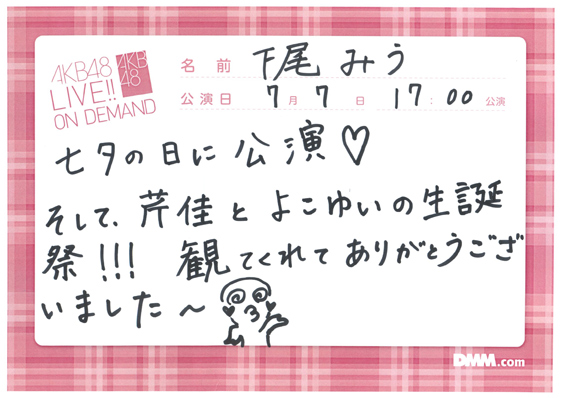 AKB48
LIVE!!
ON DEMAND
AKB
48
名前 下尾みう
公演日 7月7日 17:00 公演
七夕の日に公演♡
そして、芹佳とよこゆいの生誕
祭!!! 観てくれてありがとうござ
いました〜
DMM.com